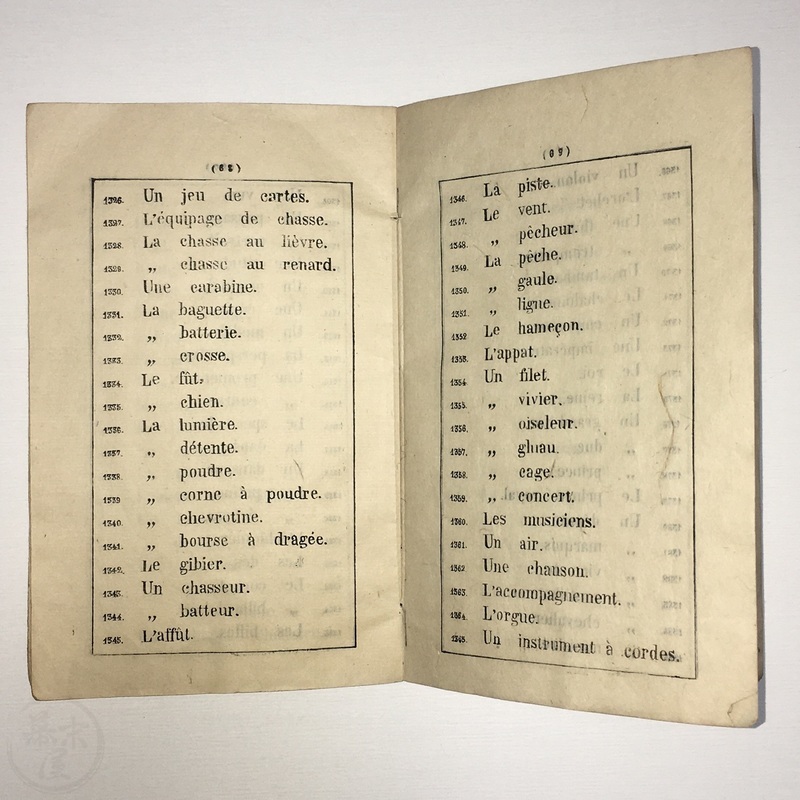 (68)
1326. Un jeu de cartes.
1327. L'équipage de chasse.
1328. La chasse au lièvre.
1329. „ chasse au renard.
1330. Une carabine.
1331. La baguette.
1332. „ batterie.
1333. „ crosse.
1334. Le fût,
1335. „ chien.
1336. La lumière.
1337. „ détente.
1338. „ poudre.
1339 „ corne à poudre.
1340. „ chevrotine.
1341. „ bourse à dragée.
1342. Le gibier.
1343. Un chasseur.
1344. „ batteur.
1345. L'affût.
1346. La piste.
1347. Le vent.
1348. „ pêcheur.
1349. La pêche.
1350. „ gaule.
1351. „ ligne.
1352 Le hameçon.
1353. L'appat.
1354 Un filet.
1355. „ vivier.
1356. „ oiseleur.
1357. „ gluau.
1358. „ cage.
1359. „ concert.
1360. Les musiciens.
1361. Un air.
1362 Une chanson.
1363. L'accompagnement.
1364. L'orgue.
1365. Un instrument à cordes.